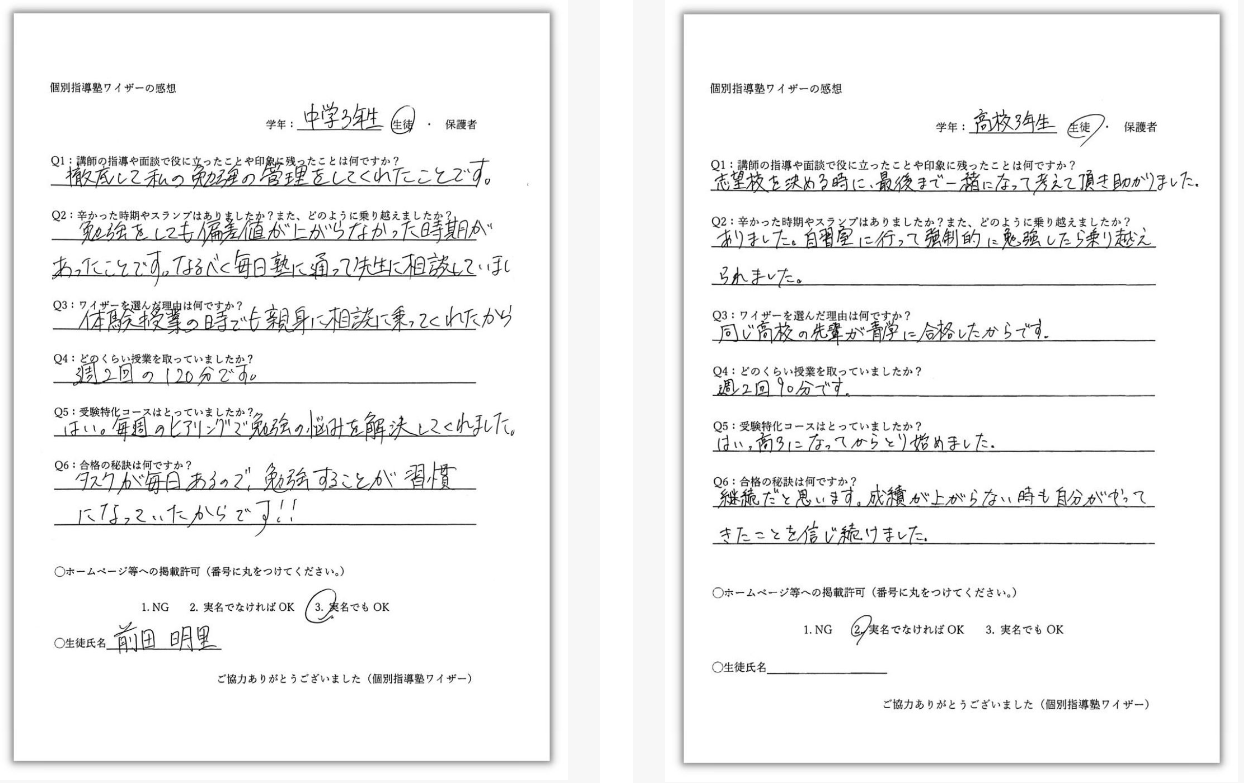 個別指導塾ワイザーの感想
学年：中学3年生 生徒 ・ 保護者
Q1：講師の指導や面談で役に立ったことや印象に残ったことは何ですか？
徹底して私の勉強の管理をしてくれたことです。
Q2：辛かった時期やスランプはありましたか？また、どのように乗り越えましたか？
勉強をしても偏差値が上がらなかった時期が
あったことです。なるべく毎日塾に通って先生に相談していまし
Q3：ワイザーを選んだ理由は何ですか？
体験授業の時でも親身に相談に乗ってくれたから
Q4：どのくらい授業を取っていましたか？
週2回の120分です。
Q5：受験特化コースはとっていましたか？
はい。毎週のヒアリングで勉強の悩みを解決してくれました。
Q6：合格の秘訣は何ですか？
タスクが毎日あるので、勉強することが習慣
になっていたからです!!
○ホームページ等への掲載許可（番号に丸をつけてください。）
1. NG 2. 実名でなければ OK 3. 実名でも OK
○生徒氏名 前田 明里
ご協力ありがとうございました（個別指導塾ワイザー）
個別指導塾ワイザーの感想
学年：高校3年生 生徒 ・ 保護者
Q1：講師の指導や面談で役に立ったことや印象に残ったことは何ですか？
志望校を決める時に、最後まで一緒になって考えて頂き助かりました。
Q2：辛かった時期やスランプはありましたか？また、どのように乗り越えましたか？
ありました。自習室に行って強制的に勉強したら乗り越え
られました。
Q3：ワイザーを選んだ理由は何ですか？
同じ高校の先輩が青学に合格したからです。
Q4：どのくらい授業を取っていましたか？
週2回90分です。
Q5：受験特化コースはとっていましたか？
はい、高3になってからとり始めました。
Q6：合格の秘訣は何ですか？
継続だと思います。成績が上がらない時も自分がやって
きたことを信じ続けました。
○ホームページ等への掲載許可（番号に丸をつけてください。）
1. NG 2. 実名でなければ OK 3. 実名でも OK
○生徒氏名
ご協力ありがとうございました（個別指導塾ワイザー）